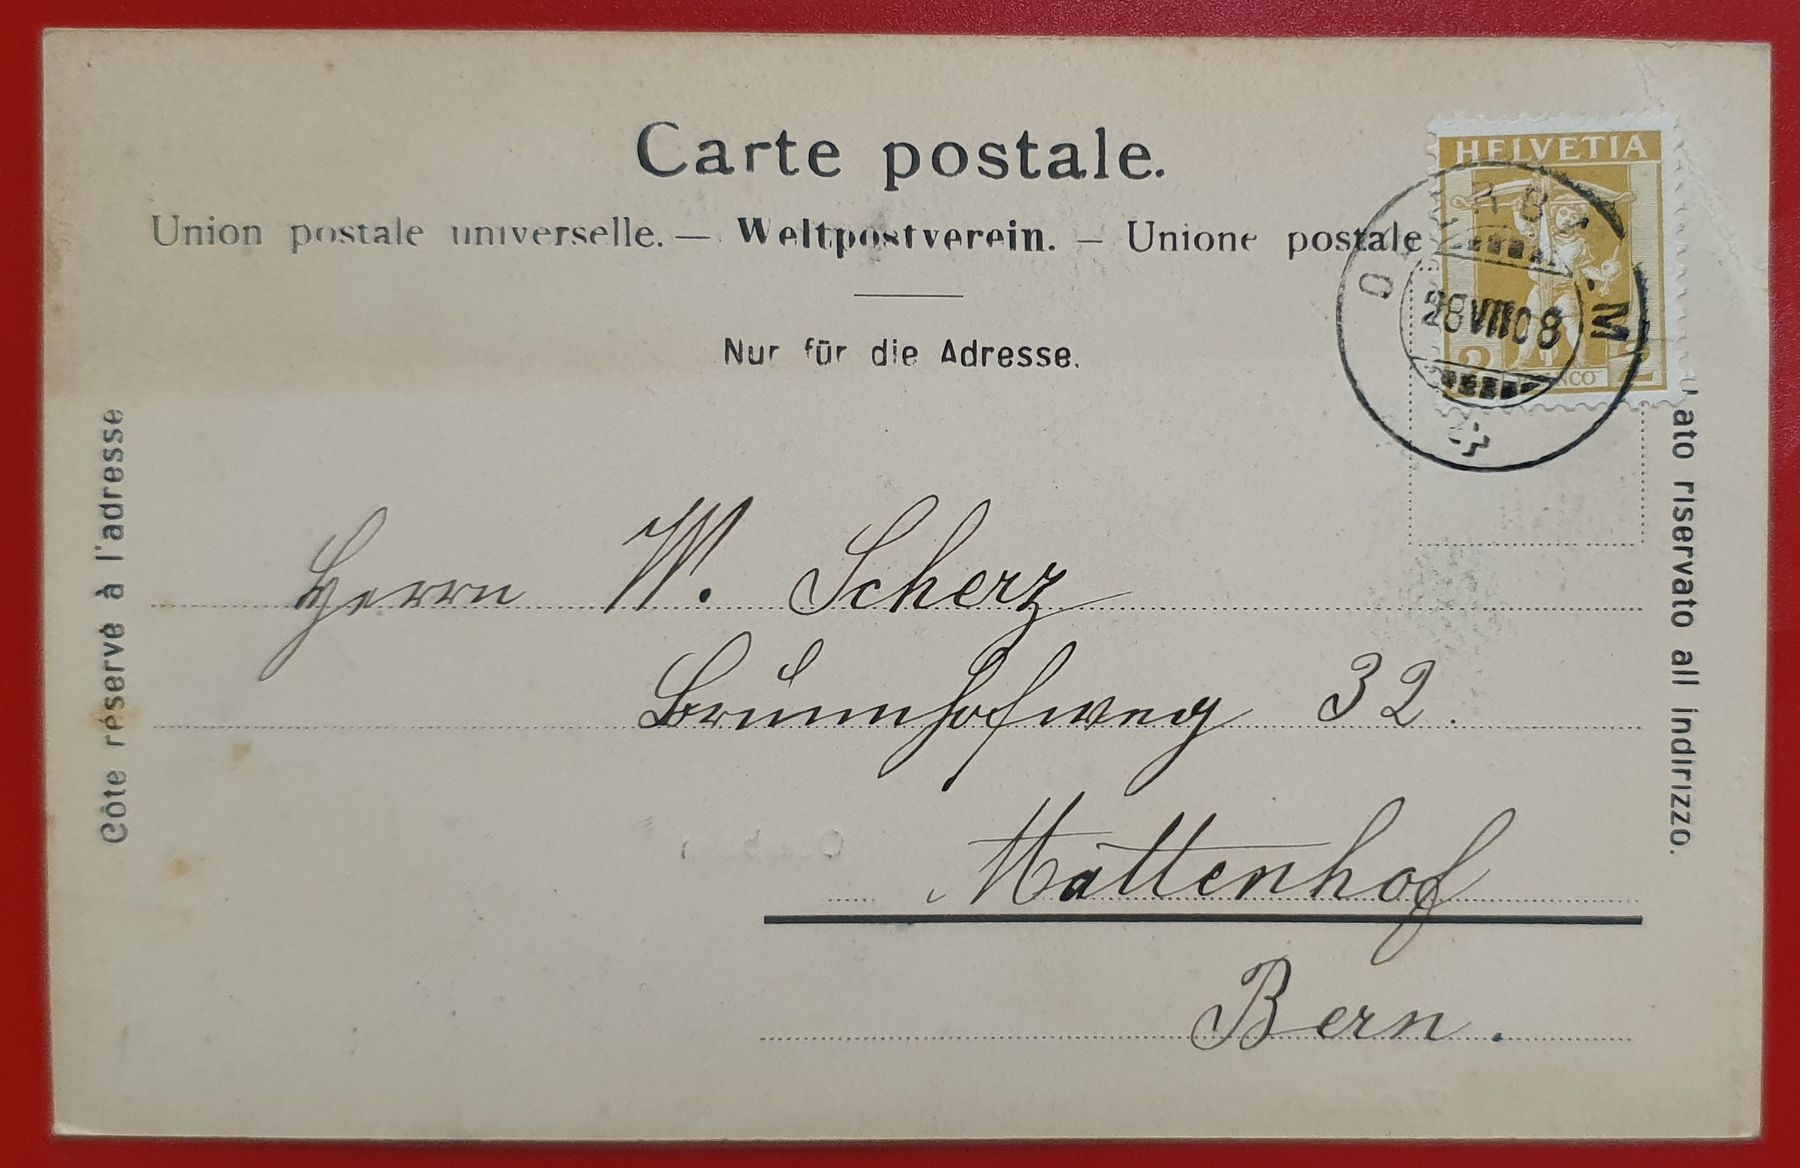 Carte postale.
HELVETIA
Union postale universelle. — Weltpostverein. — Unione postale
Nur für die Adresse.
28 VII 08
2 2
Côte réservé à l'adresse
ato riservato all indirizzo.
Herrn W. Scherz
Brunnhofweg 32.
Mattenhof
Bern.